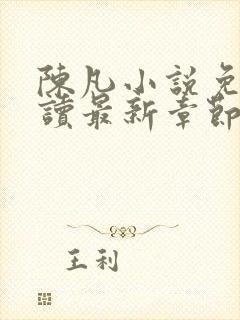 陳凡小說免
讀最新章節
王利